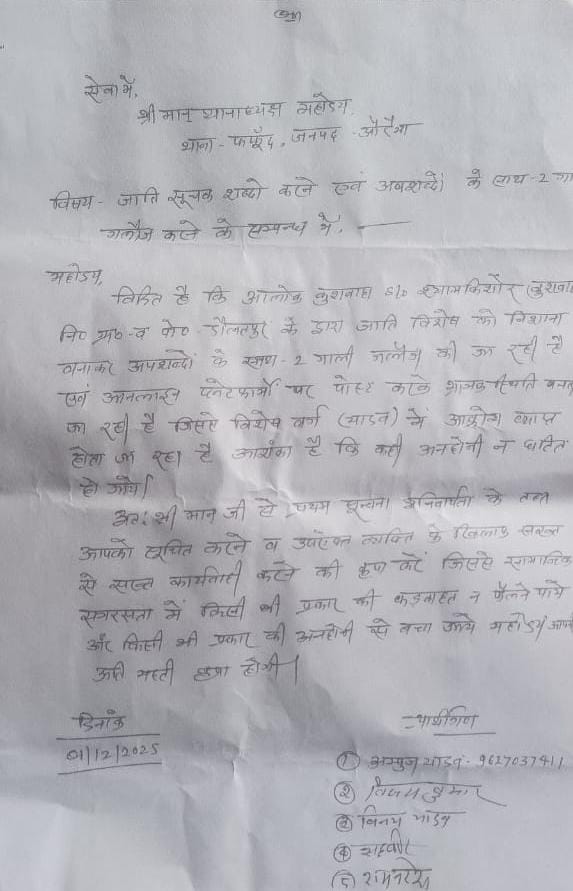 सेवा में,
श्री मान् थानाध्यक्ष महोदय,
थाना - फफूँद, जनपद - औरैया
विषय - जाति सूचक शब्दो कहने एवं अपशब्दों के साथ - 2
गलौज करने के सम्बन्ध में,
महोदय,
विदित है कि आलोक कुशवाहा S/o श्यामकिशोर
नि० ग्रा० - व पो० - दौलतपुर के द्वारा जाति विशेष को निशाना
बनाकर अपशब्दों के साथ - 2 गाली गलौज की जा रही है
एवं आनलाइन प्लेटफार्मो पर पोस्ट करके भ्रामक स्थिति
जा रही है जिससे विशेष वर्ग (यादव) में आक्रोश व्याप्त
होता जा रहा है आशंका है कि कही अनहोनी न घटित
हो जाये।
अतः श्री मान जी से प्रथम सूचना के तहत
आपको सूचित करने व उपरोक्त व्यक्ति के खिलाफ सख्त
से सख्त कार्यवाही करने की कृपा करें जिससे सामाजिक
समरसता में किसी भी प्रकार की कड़वाहट न फैलने पाये
और किसी भी प्रकार की अनहोनी से बचा जाये महोदय
अति महती कृपा होगी।
दिनांक
01/12/2025
प्रार्थीगण
① यादव - 9627037411
② कुमार
③ विनय यादव
④
⑤